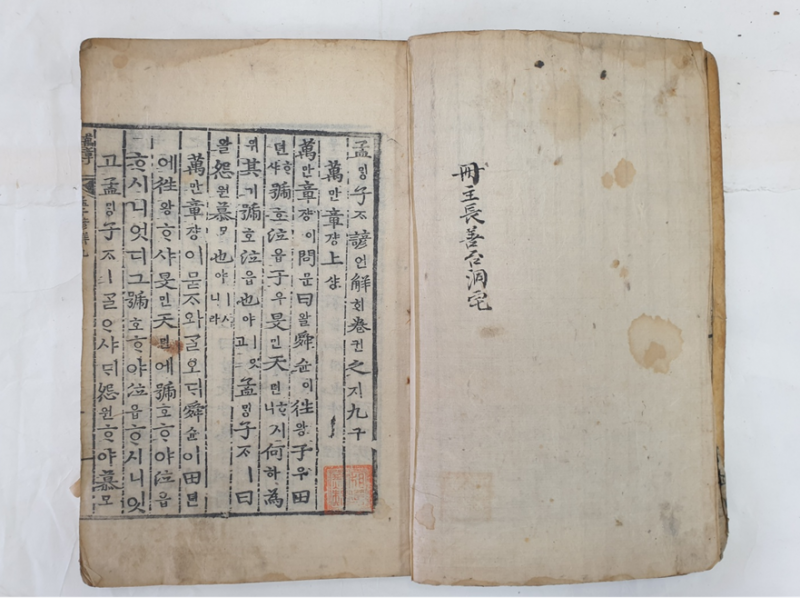 冊主長善 洞宅
孟밍子ᄌᆞ諺언解ᄒᆡ卷권之지九구
萬만章쟝上샹
萬만章쟝이問문曰왈舜슌이往왕于우田
뎐ᄒᆞ샤號호泣읍于우旻민天텬ᄒᆞ시니何하爲
위其기號호泣읍也야ㅣ잇고孟밍子ᄌᆞㅣ曰
왈怨원慕모也야ㅣ니라
萬만章쟝이묻ᄌᆞ와ᄀᆞᆯ오ᄃᆡ舜슌이田뎐
에往왕ᄒᆞ샤旻민天텬에號호ᄒᆞ야泣읍
ᄒᆞ시니엇디그號호ᄒᆞ야泣읍ᄒᆞ시니잇
고孟밍子ᄌᆞㅣᄀᆞᆯᄋᆞ샤ᄃᆡ怨원ᄒᆞ야慕모